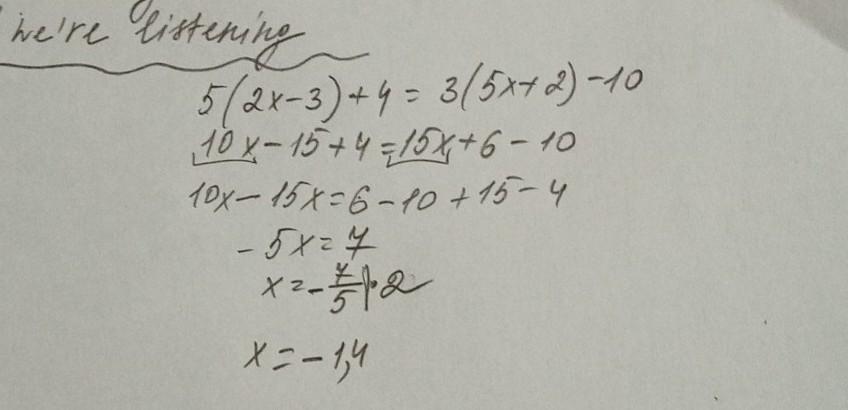 we're listening
5(2x-3)+4=3(5x+2)-10
10x-15+4=15x+6-10
10x-15x=6-10+15-4
-5x=7
x=-7/5|·2
x=-1,4